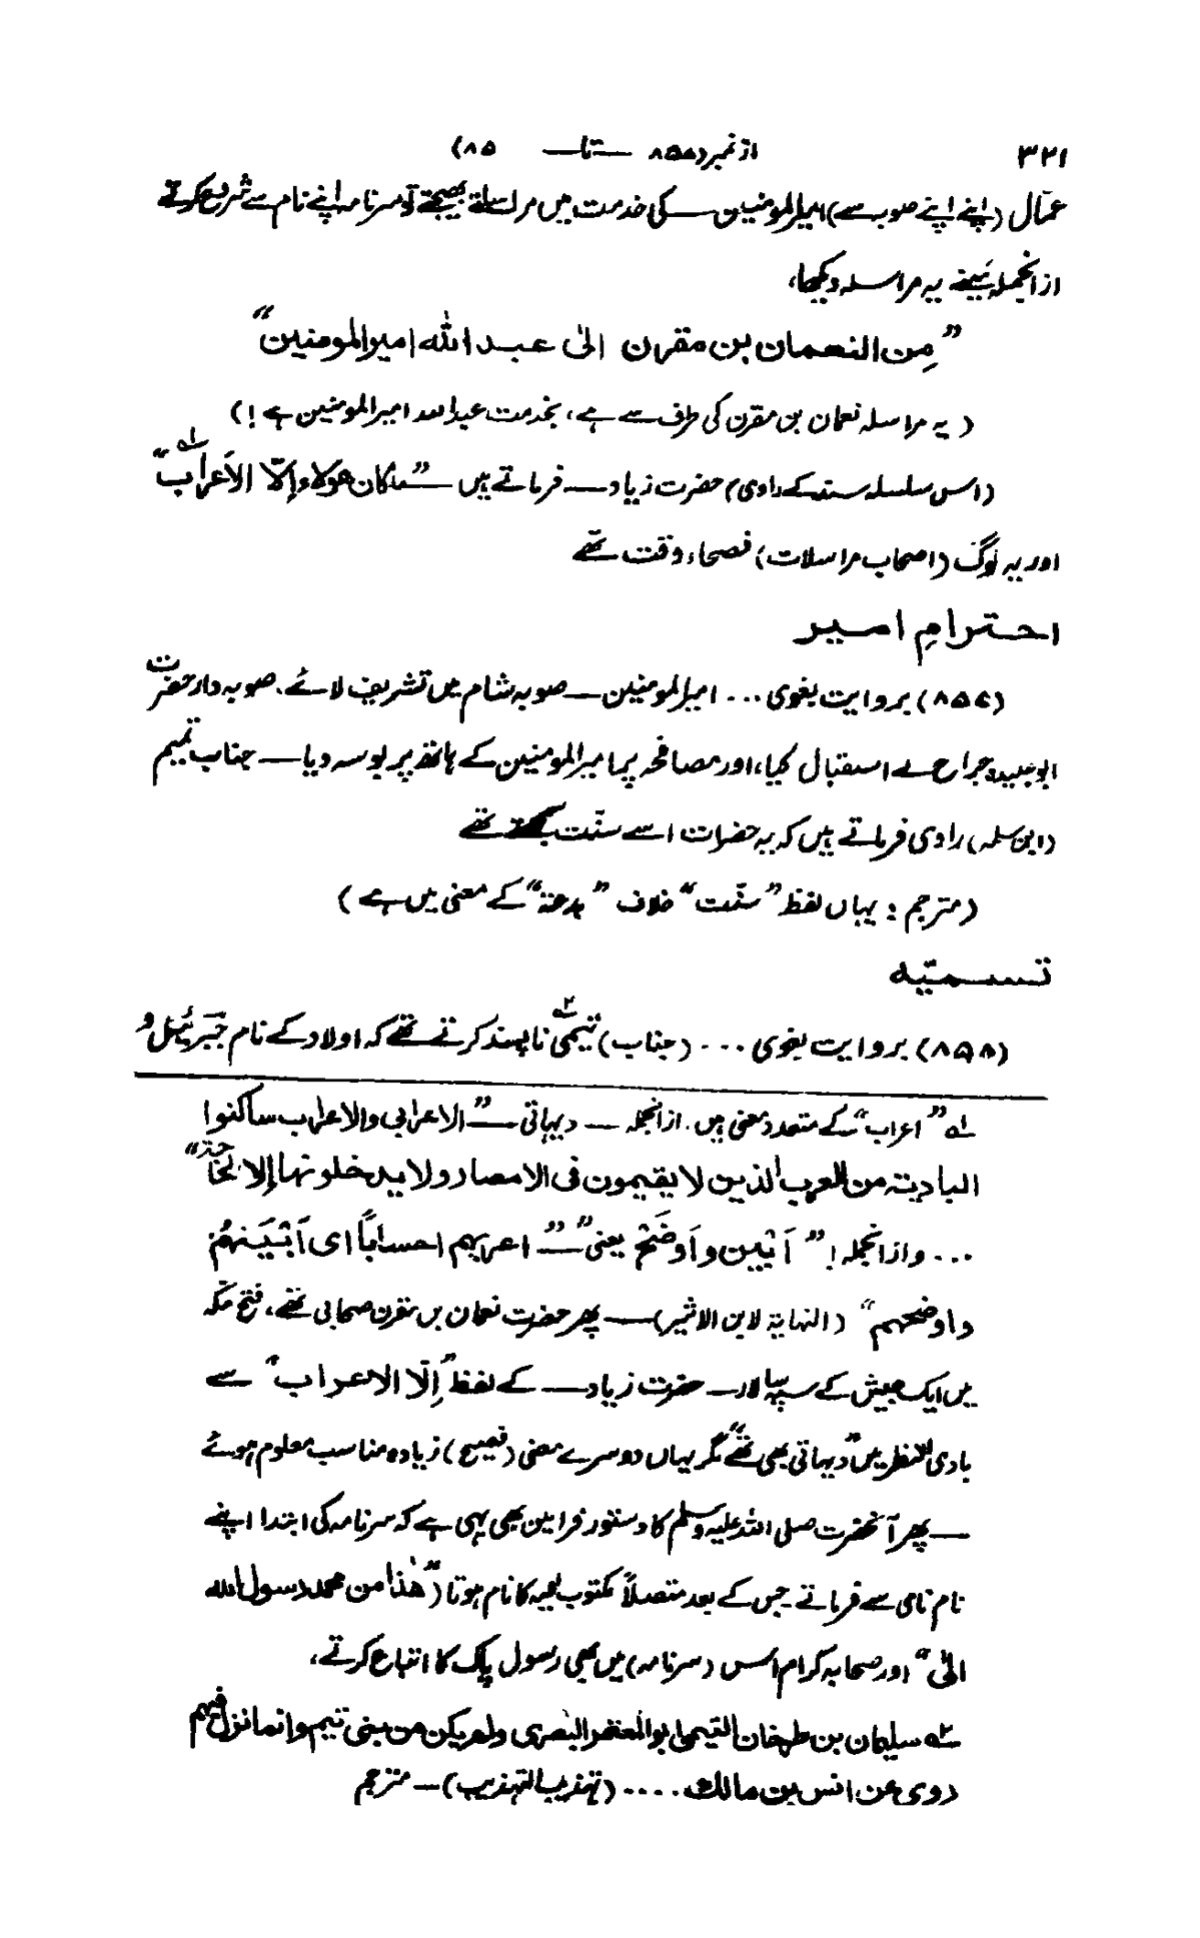 ۳۲۱ از نمبر (۸۵۸ — تا — ۸۵)
عمّال (اپنے اپنے صوبہ سے) امیرالمومنین — کی خدمت میں مراسلہ بھیجتے تو سرنامہ اپنے نام سے شروع کرتے
ازانجملہ مَیںنے یہ مراسلہ دیکھا،
”مِن النعمان بن مقرن الیٰ عبد اللہ امیرالمومنین“
(یہ مراسلہ نعمان بن مقرن کی طرف سے ہے، بخدمت عبداللہ امیرالمومنین ہے!)
(اس سلسلہ سند کے راوی) حضرت زیاد — فرماتے ہیں — ”ماکان ھولاء اِلّا الاَعراب“ ؎۱
اور یہ لوگ (اصحاب مراسلات) فصحاء وقت تھے
احترامِ امیر
(۸۵۷) بروایت بغوی ... امیرالمومنین — صوبہ شام میں تشریف لائے، صوبہ دار حضرت
ابوعبیدہ جراح نے استقبال کیا، اور مصافحہ پر امیرالمومنین کے ہاتھ پر بوسہ دیا — جناب تمیم
(ابن سلمہ) راوی فرماتے ہیں کہ یہ حضرات اسے سنّت کہتے تھے
(مترجم : یہاں لفظ ”سنّت“ خلاف ”بدعة“ کے معنی میں ہے)
تسمیّہ
(۸۵۸) بروایت بغوی ... (جناب) تیمی ؎۲ ناپسند کرتے تھے کہ اولاد کے نام جَبرئیل و
؎۱ ”اعراب“ کے متعدد معنی ہیں. ازانجملہ — دیہاتی — ”الاعرابی والاعراب ساکنوا
البادیتہ من العرب الذین لا یقیمون فی الامصار ولا یدخلونھا اِلا لحاجة“
... وازانجملہ! ”اَبْیَن و اَوضَح“ یعنی — ”اعربھم احساباً ای اَبْیَنھُم
واوضحھم“ (النہایة لابن الاثیر) — پھر حضرت نعمان بن مقرن صحابی تھے، فتح مکّہ
میں ایک جیش کے سپہ سالار — حضرت زیاد — کے لفظ ”اِلّا الاعراب“ سے
بادی النظر میں ”دیہاتی بھی تھے“ مگر یہاں دوسرے معنی (فصیح) زیادہ مناسب معلوم ہوئے
— پھر آنحضرت صلی اللہ علیہ وسلم کا دستور فرامین بھی یہی ہے کہ سرنامہ کی ابتدا اپنے
نام نامی سے فرماتے جس کے بعد متصلاً مکتوب الیہ کا نام ہوتا (”ھٰذا من محمد رسول اللہ
الیٰ“ اور صحابہ کرام اس (سرنامہ) میں بھی رسول پاک کا اتباع کرتے،
؎۲ سلیمان بن طرخان التیمی ابوالمعتمر البصری ولم یکن من بنی تیم وانما نزل فیھم
روی عن انس بن مالک .... (تہذیب التہذیب) — مترجم